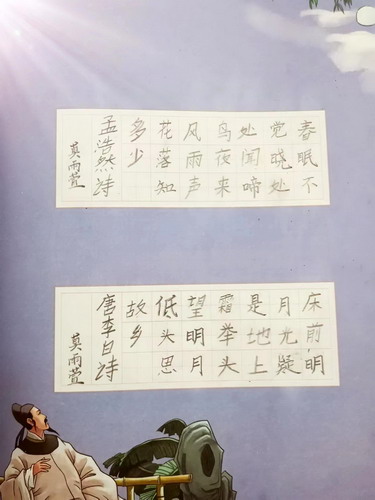 春眠不
觉晓处
处闻啼
鸟夜来
风雨声
花落知
多少
孟浩然诗
莫雨萱
床前明
月光疑
是地上
霜举头
望明月
低头思
故乡
唐李白诗
莫雨萱